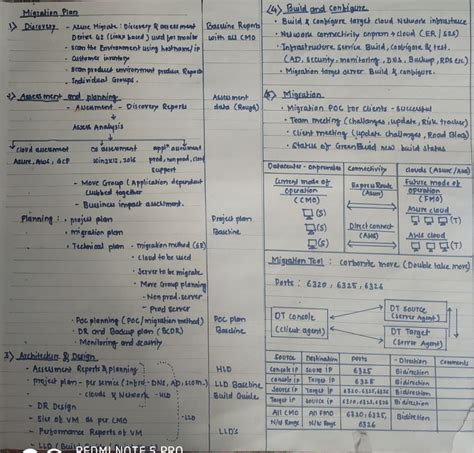 Migration Plan
1) Discovery - Azure Migrate: Discovery & assessment
Device 42 (Linux based) used for monitor
- scan the Environment using hostname/ip
- Customer inventory
- scan product environment produce Reports
- Individual Groups.
Baseline Reports
with all CMO
2) Assessment and planning
- Assessment - Discovery Reports
Assess Analysis
Assessment
data (Rough)
cloud assessment
Azure, AWS, GCP
OS assessment
Win2012, 2016
appln assessment
prod, nonprod, cord
support
- Move Group (Application dependent
clubbed together
- Business impact assessment.
Planning : - project plan
- migration plan
- Technical plan - migration method
- Cloud to be used
- Server to be migrate
- Move Group planning
- Non prod. server
- Prod server
Project plan
Baseline
- POC planning (POC/migration method)
- DR and Backup plan (BCDR)
- Monitoring and security
POC plan
Baseline
3) Architecture & Design
- Assessment Reports & planning
- project plan - per service (Infra - DNS, AD,
- clouds & Network - HLD
- DR Design
- Size of VM as per CMO
- Performance Reports of VM
- LLD
HLD
LLD Baseline
Build Guide
- LLD
LLD's
(4) Build and configure
• Build & configure target cloud Network infrastructure
• Network connectivity onprem → cloud (ER/S2S)
• Infrastructure service Build, configure & test.
(AD, security, monitoring, DNS, Backup, RDS etc)
• Migration target server Build & configure.
(5) Migration
• Migration POC for clients - successful
• Team meeting (challenges, update, Risk tracker)
• Client meeting (update challenges, Road Blog)
• Status of Green Build new build status
Datacenter - onpremises connectivity clouds (Azure/AWS)
Current mode of
operation
(CMO)
Express Route
(Azure)
Future mode of
operation
(FMO)
Azure cloud
(S)
(T)
(S)
Direct connect
(AWS)
AWS cloud
(S)
(T)
Migration Tool : carbonite move (Double take move)
Ports : 6320, 6325, 6326
DT console
(client agent)
DT source
(server Agent)
DT Target
(Server Agent)
Source Destination ports Direction Comments
Console IP source IP 6325 Bidirection
console IP Target IP 6325 Bidirection
Source IP Target IP 6320, 6325, 6326 Bidirection
Target IP source IP 6320, 6325, 6326 Bidirection
All CMO All FMO 6320, 6325, Bidirection
N/W Range N/W Range 6326
REDMI NOTE 5 PRO